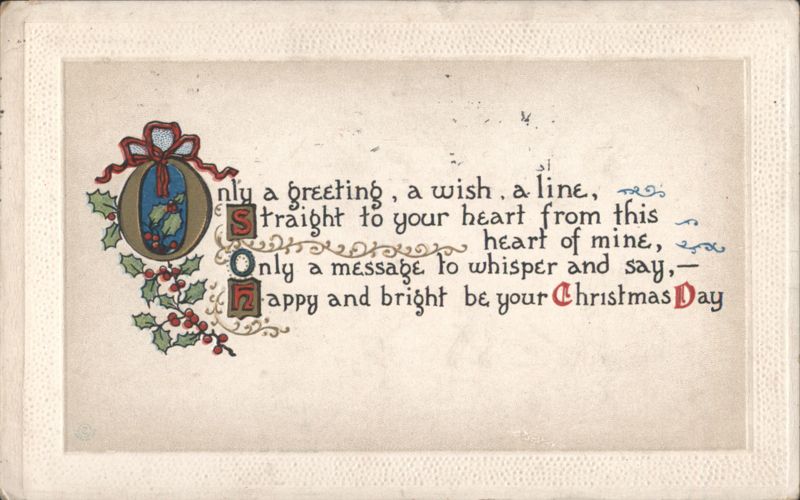 Only a greeting, a wish, a line,
Straight to your heart from this
heart of mine,
Only a message to whisper and say,—
Happy and bright be your Christmas Day